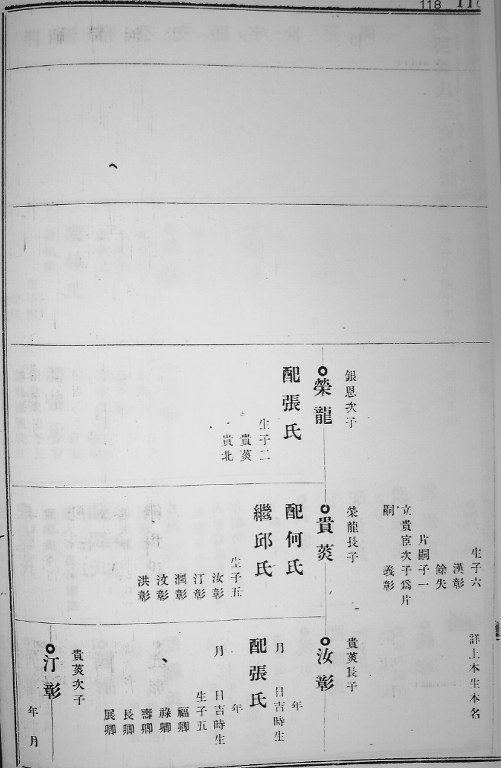 118
生子六
漢彰
餘失
片嗣子一
立貴宦次子爲片
嗣 義彰
銀恩次子
榮龍
配張氏
生子二
貴北
榮龍長子
配何氏
繼邱氏
生子五
汝彰
汀彰
潤彰
汶彰
洪彰
詳上本生本名
長子
汝彰
年
月 日吉時生
配張氏
年
月 日吉時生
生子五
福卿
祿卿
壽卿
長卿
展卿
次子
汀彰
年 月